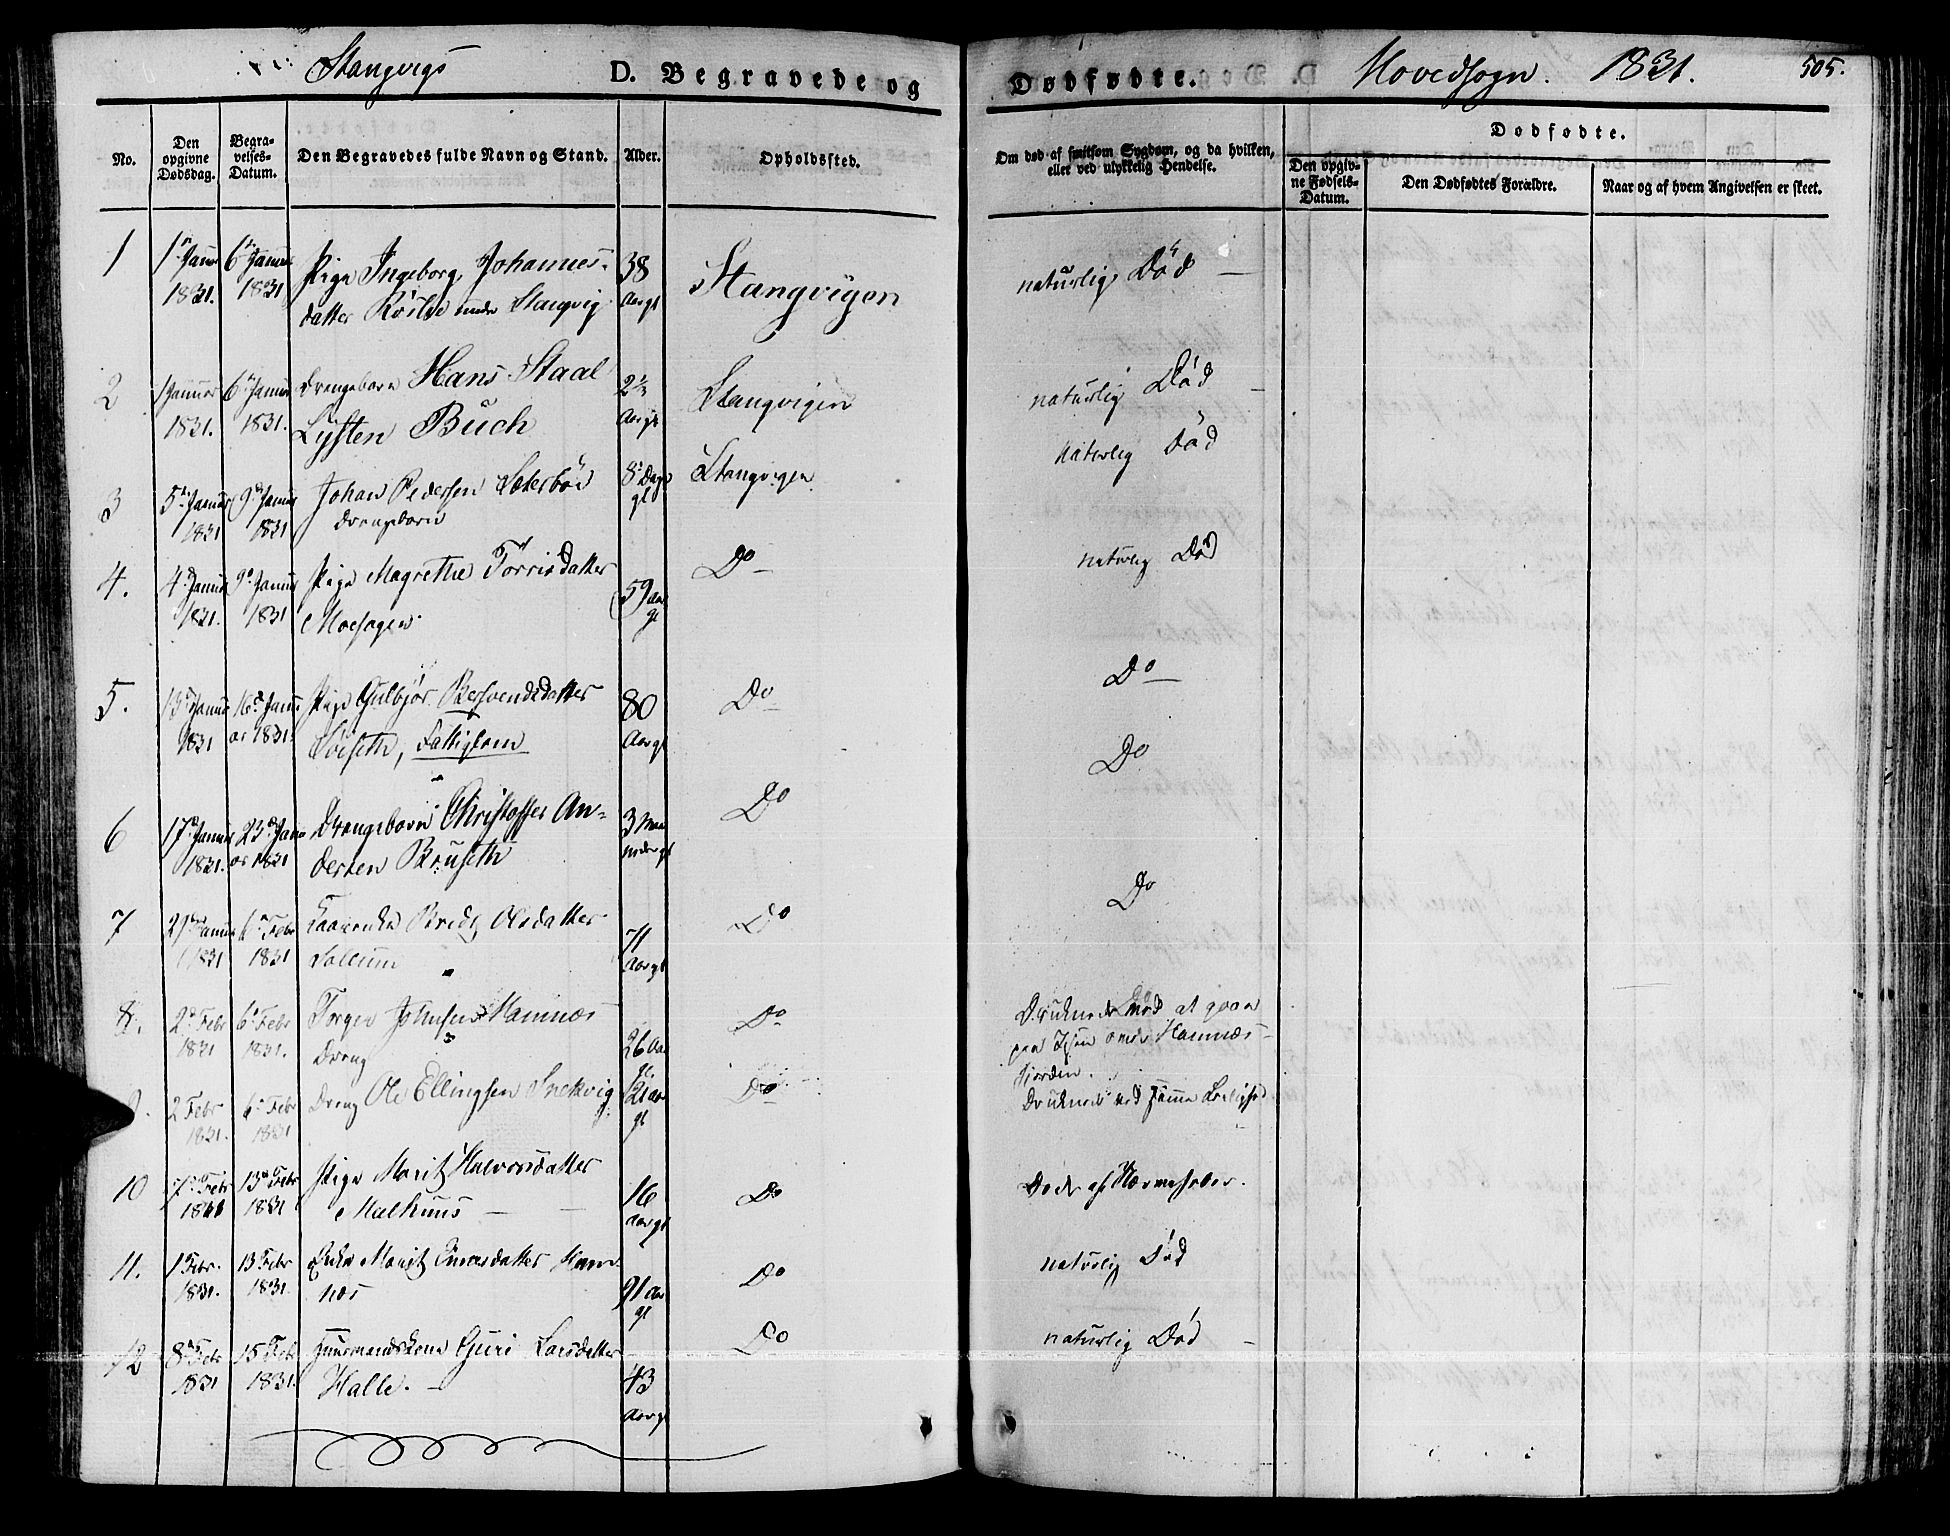 Stangvigs D. Begravede og Dødfødte. Hovedsogn. 1831. 505.
No.
Den opgivne Dødsdag.
Begravelses-Datum.
Den Begravedes fulde Navn og Stand.
Alder.
Opholdssted.
Om død af smitsom Sygdom, og da hvilken, eller ved ulykkelig Hendelse.
Dødfødte.
Den opgivne Fødsels-Datum.
Den Dødfødtes Forældre.
Naar og af hvem Angivelsen er skeet.
1 1 Januar 6 Januar Pige Ingeborg Johannes- 38 Stangvigen naturlig Død —
1831. 1831 datter under Stangvig Aar gl
2 1 Januar 6 Januar Drengebarn Hans Staal 2½ Stangvigen naturlig Død —
1831. 1831. Lysten Buch Aar gl
3 5 Januar 9 Januar Johan Pedersen Sæterbøe 8 Dage Stangvigen naturlig Død
1831 1831 Drengebarn gl
4. 4 Januar 9 Januar Pige Magrethe Torrisdatter 59 Aar Do — naturlig Død
1831. 1831 Moehagen gl
5. 13 Januar 16 Janu- Pige Gulbjør 80 Do Do
1831 ar 1831. Fattiglem Aar gl
6 17 Januar 23 Janu- Drengebarn Christoffer An- 3 Maa- Do Do
1831. ar 1831 dersen Bruseth neder gl
7 21 Januar 6 Febr Olsdatter 71 Do Do
1831 1831 Sollium Aar gl
8. 2 Febr 6 Febr Johnsen Hamnæs 26 Aar Do Druknede ved at gaae
1831 1831. Dreng gl. paa Isen over Hamnæs-
fjorden.
9. 2 Febr 6 Febr Dreng Ole Ellingsen Snekvig 21 Aar Do Druknede ved samme Leilighed
1831. 1831 gl
10 7 Febr 13 Febr Pige Marit Halvorsdatter 16 Do Døde af Nervefeber.
1831 1831 Malhuus — Aar gl
11. 1 Febr. 13 Febr Enke Marit datter Ham- 91 Aar Do naturlig Død
1831. 1831. næs gl
12 8 Febr 15 Febr Huusmandskone Guri Larsdatter 43 Do naturlig Død —
1831 1831. Halle. — Aar gl